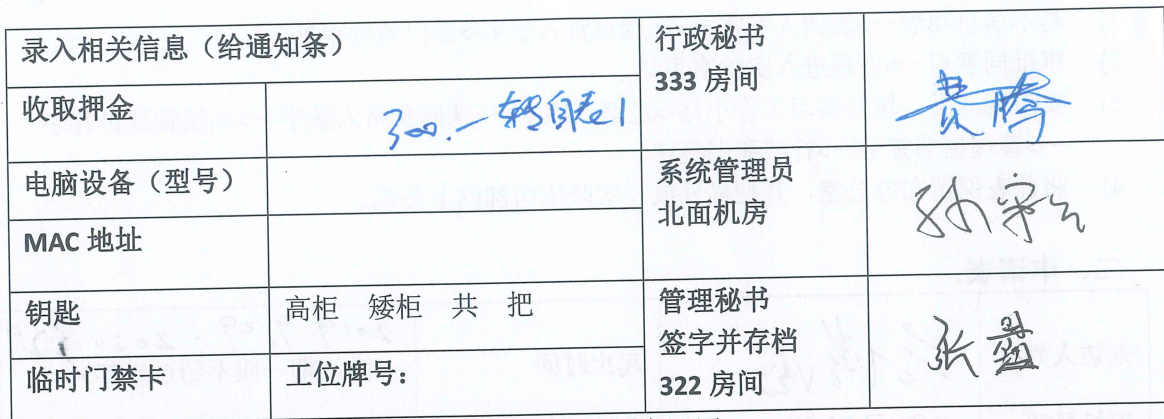 录入相关信息（给通知条）
行政秘书
333 房间
收取押金
300.一 转自表1
费腾
电脑设备（型号）
系统管理员
北面机房
MAC 地址
钥匙
高柜 矮柜 共 把
管理秘书
签字并存档
322 房间
张
临时门禁卡
工位牌号：